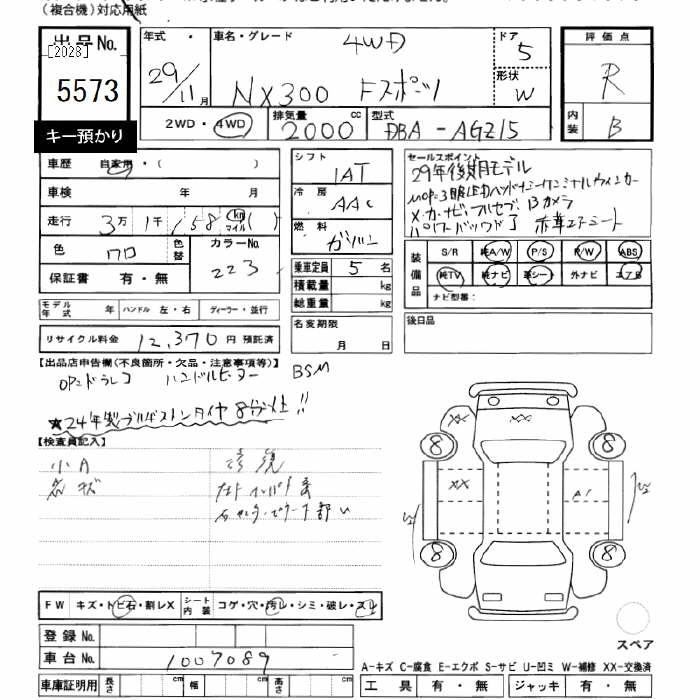 (複合機)対応用紙
出品No. [2028] 5573
キー預かり
年式・ 29/11月
車名・グレード 4WD NX300 Fスポーツ
ドア 5
形状 W
評価点 R
内装 B
2WD・4WD
排気量 2000 cc
型式 DBA-AGZ15
車歴 自家用・( )
車検 年 月
走行 3万1千158 km マイル ( )
色 クロ 色替
カラーNo. 223
保証書 有・無
モデル年式 年 ハンドル 左・右 ディーラー・並行
リサイクル料金 12,370 円 預託済
シフト 1AT
冷房 AAC
燃料 ガソリン
乗車定員 5 名
積載量 kg
総重量 kg
名変期限 月 日
セールスポイント
29年後期モデル
MOP=3眼LEDヘッド
X.カーナビ フルセグ Bカメラ
パワーバックドア 赤革エアシート
装備品 S/R 純A/W P/S R/W ABS
純TV 純ナビ 革シート 外ナビ エアB
ナビ型番:
後日品
【出品店申告欄(不良箇所・欠品・注意事項等)】 BSM
OP=ドラレコ ハンドルヒーター
★24年製ブルヂストンタイヤ8分以上!!
【検査員記入】
小A 修復
右
XX XX
8 8
XX A1
8 8
FW キズ・トビ石・割レX シート内装 コゲ・穴・汚レ・シミ・破レ・スレ
登録No.
車台No. 1007089
車庫証明用 長さ cm 幅 cm 高さ cm
スペア
A-キズ C-腐食 E-エクボ S-サビ U-凹ミ W-補修 XX-交換済
工具 有・無 ジャッキ 有・無